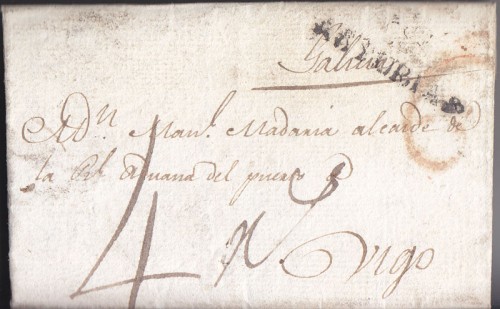 Galicia
A Dn Manl. Madaria alcaide de
la Rl Aduana del puerto de
4
Vigo